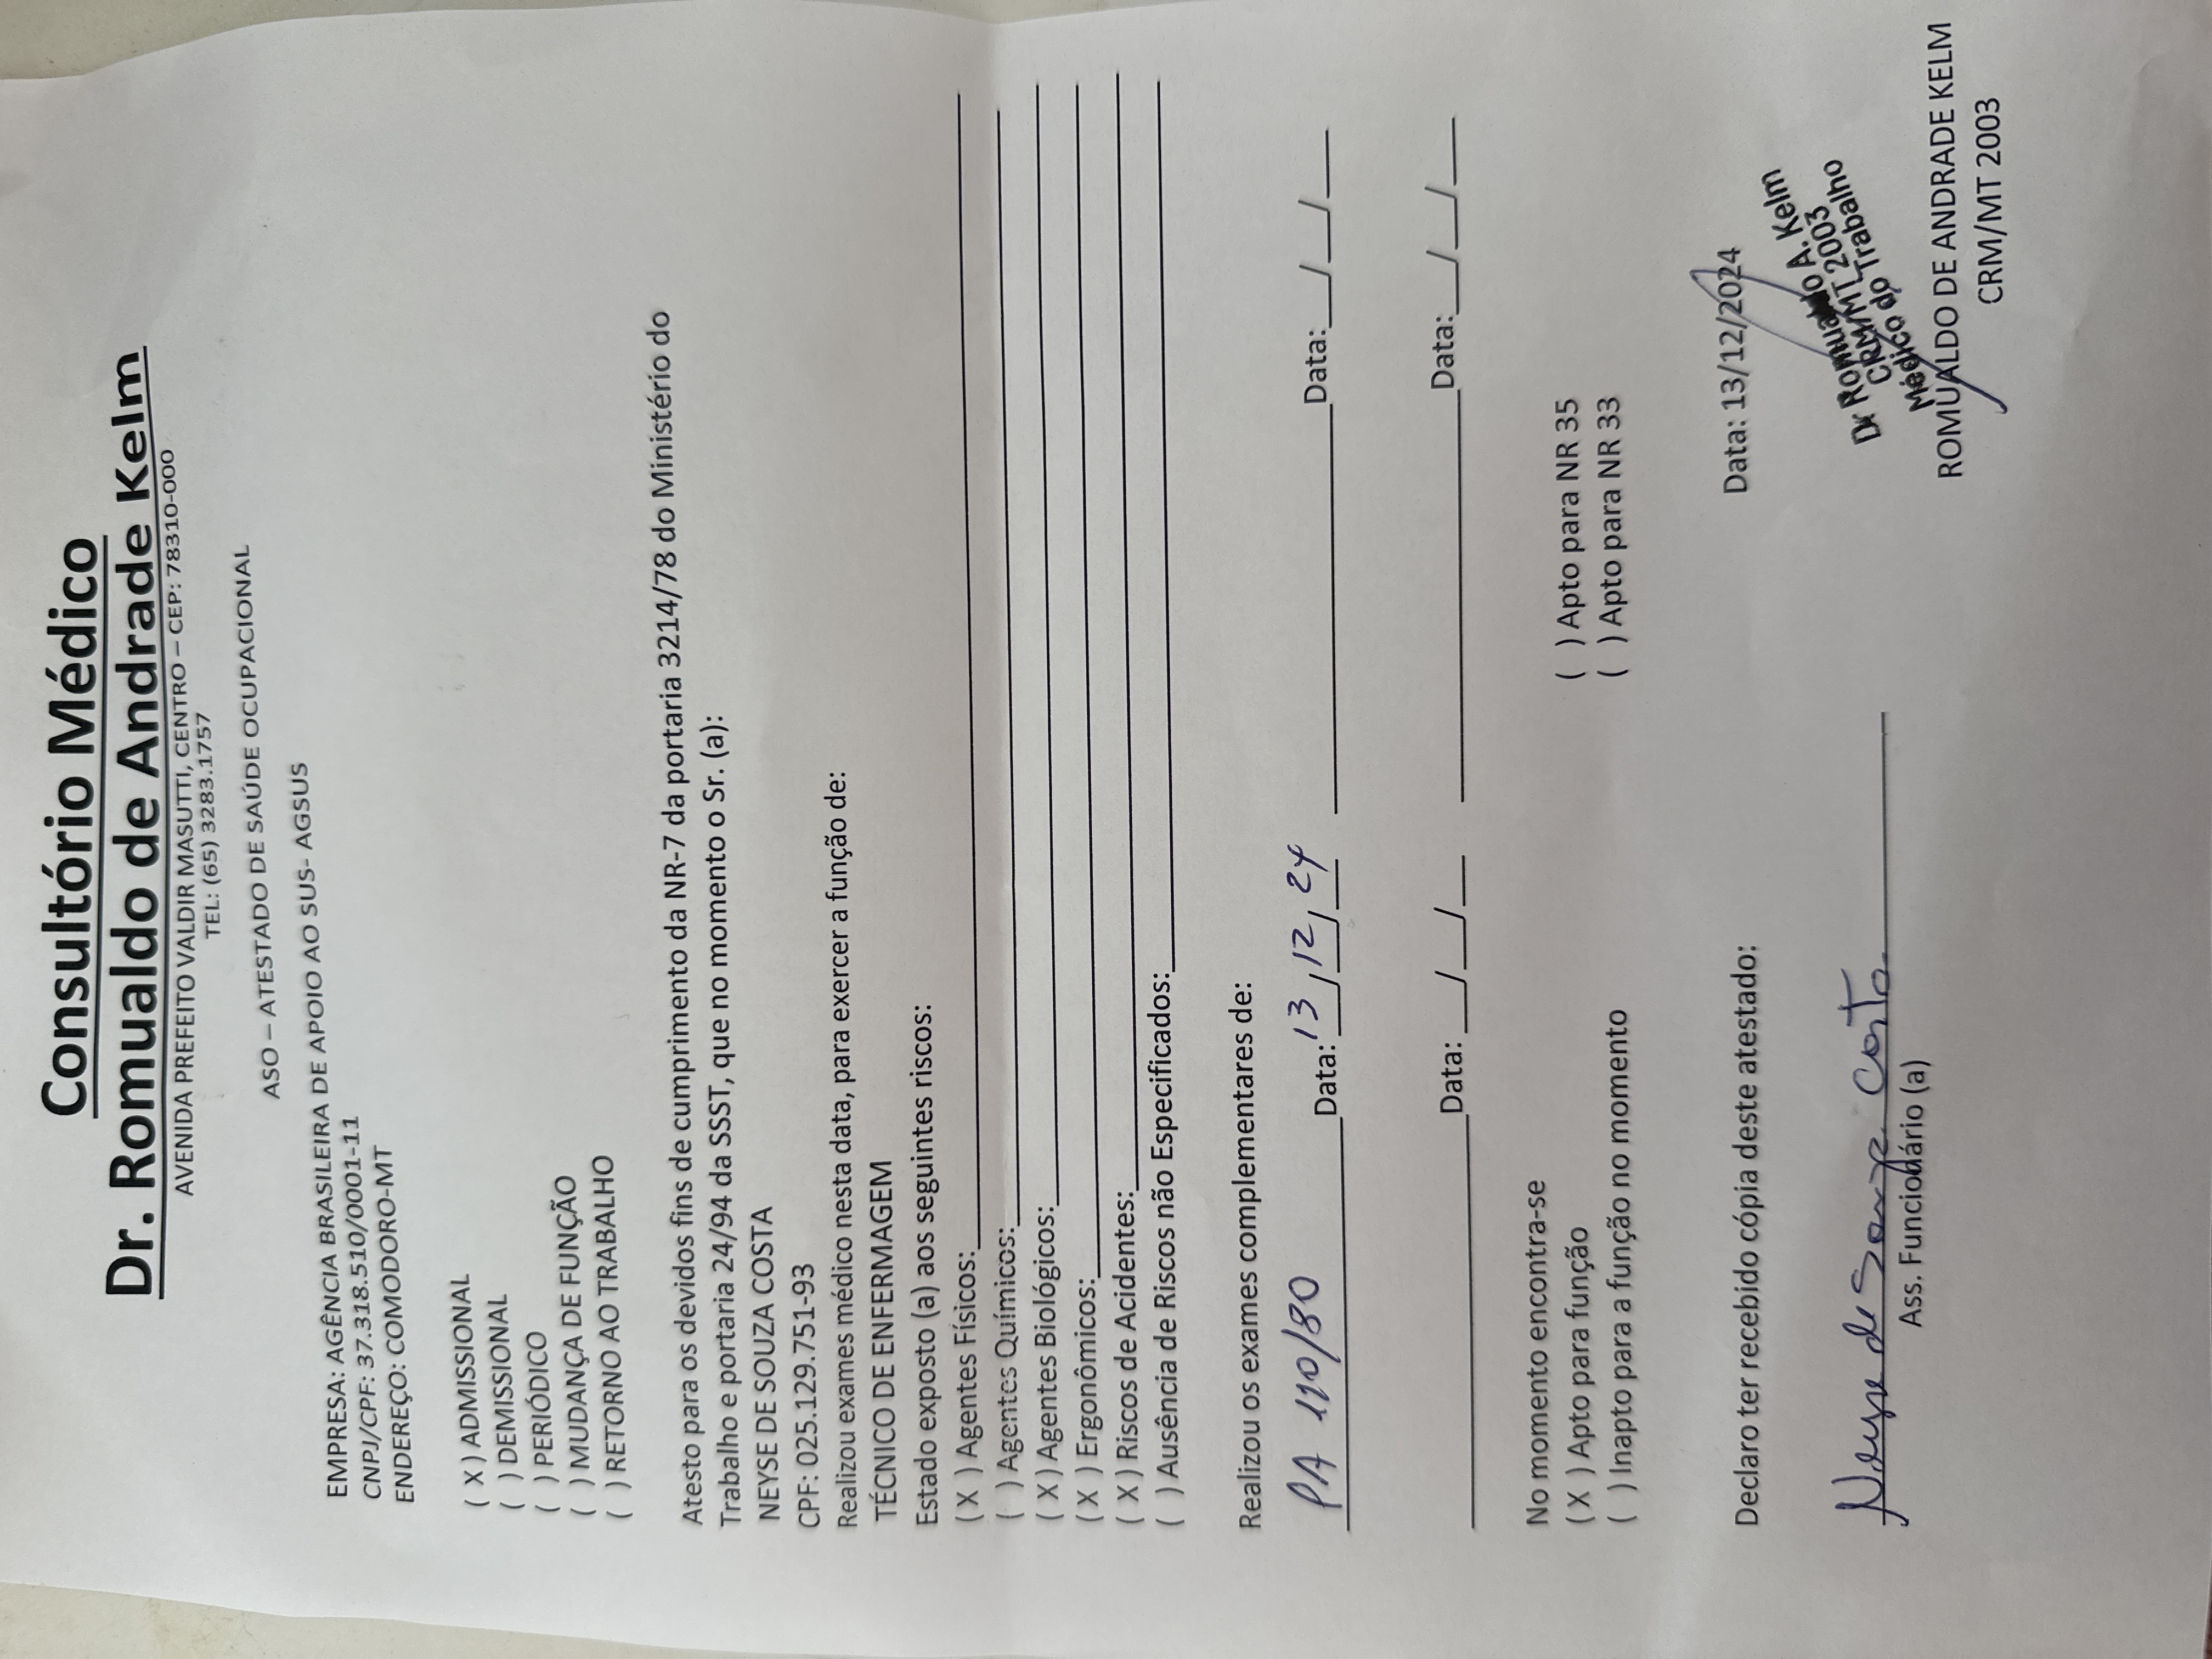 Consultório Médico
Dr. Romualdo de Andrade Kelm
AVENIDA PREFEITO VALDIR MASUTTI, CENTRO – CEP: 78310-000
TEL: (65) 3283.1757
ASO – ATESTADO DE SAÚDE OCUPACIONAL
EMPRESA: AGÊNCIA BRASILEIRA DE APOIO AO SUS- AGSUS
CNPJ/CPF: 37.318.510/0001-11
ENDEREÇO: COMODORO-MT
( X ) ADMISSIONAL
( ) DEMISSIONAL
( ) PERIÓDICO
( ) MUDANÇA DE FUNÇÃO
( ) RETORNO AO TRABALHO
Atesto para os devidos fins de cumprimento da NR-7 da portaria 3214/78 do Ministério do
Trabalho e portaria 24/94 da SSST, que no momento o Sr. (a):
NEYSE DE SOUZA COSTA
CPF: 025.129.751-93
Realizou exames médico nesta data, para exercer a função de:
TÉCNICO DE ENFERMAGEM
Estado exposto (a) aos seguintes riscos:
( X ) Agentes Físicos:
( ) Agentes Químicos:
( X ) Agentes Biológicos:
( X ) Ergonômicos:
( X ) Riscos de Acidentes:
( ) Ausência de Riscos não Especificados:
Realizou os exames complementares de:
PA 110/80 Data: 13/12/24 Data:___/___/___
Data: ___/___/___ Data:___/___/___
No momento encontra-se
( X ) Apto para função ( ) Apto para NR 35
( ) Inapto para a função no momento ( ) Apto para NR 33
Declaro ter recebido cópia deste atestado: Data: 13/12/2024
Dr Romualdo A. Kelm
CRM/MT 2003
Médico do Trabalho
Neyse de Souza Costa
Ass. Funcionário (a)
ROMUALDO DE ANDRADE KELM
CRM/MT 2003